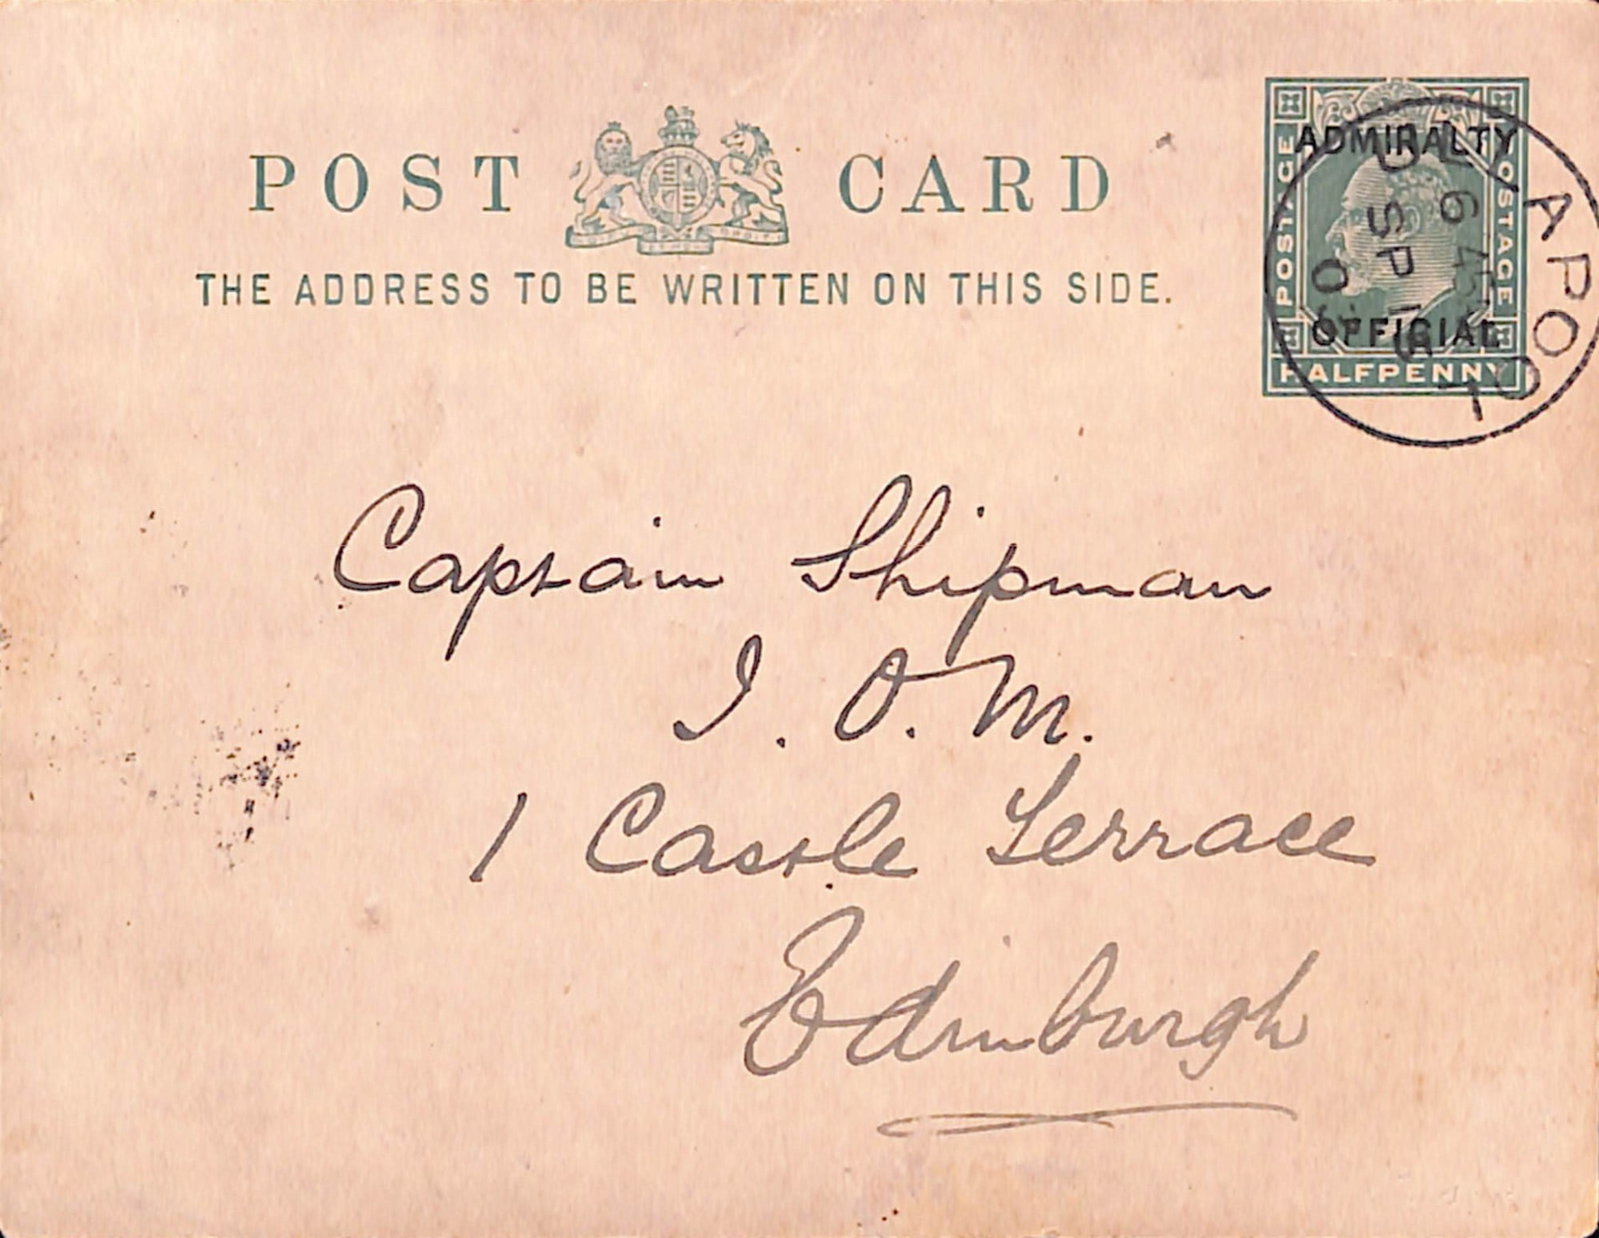 POST CARD
THE ADDRESS TO BE WRITTEN ON THIS SIDE.
POSTAGE
POSTAGE
ADMIRALTY
OFFICIAL
HALFPENNY
6 45
SP 16
03
Captain Shipman
I. O. M.
1 Castle Terrace
Edinburgh